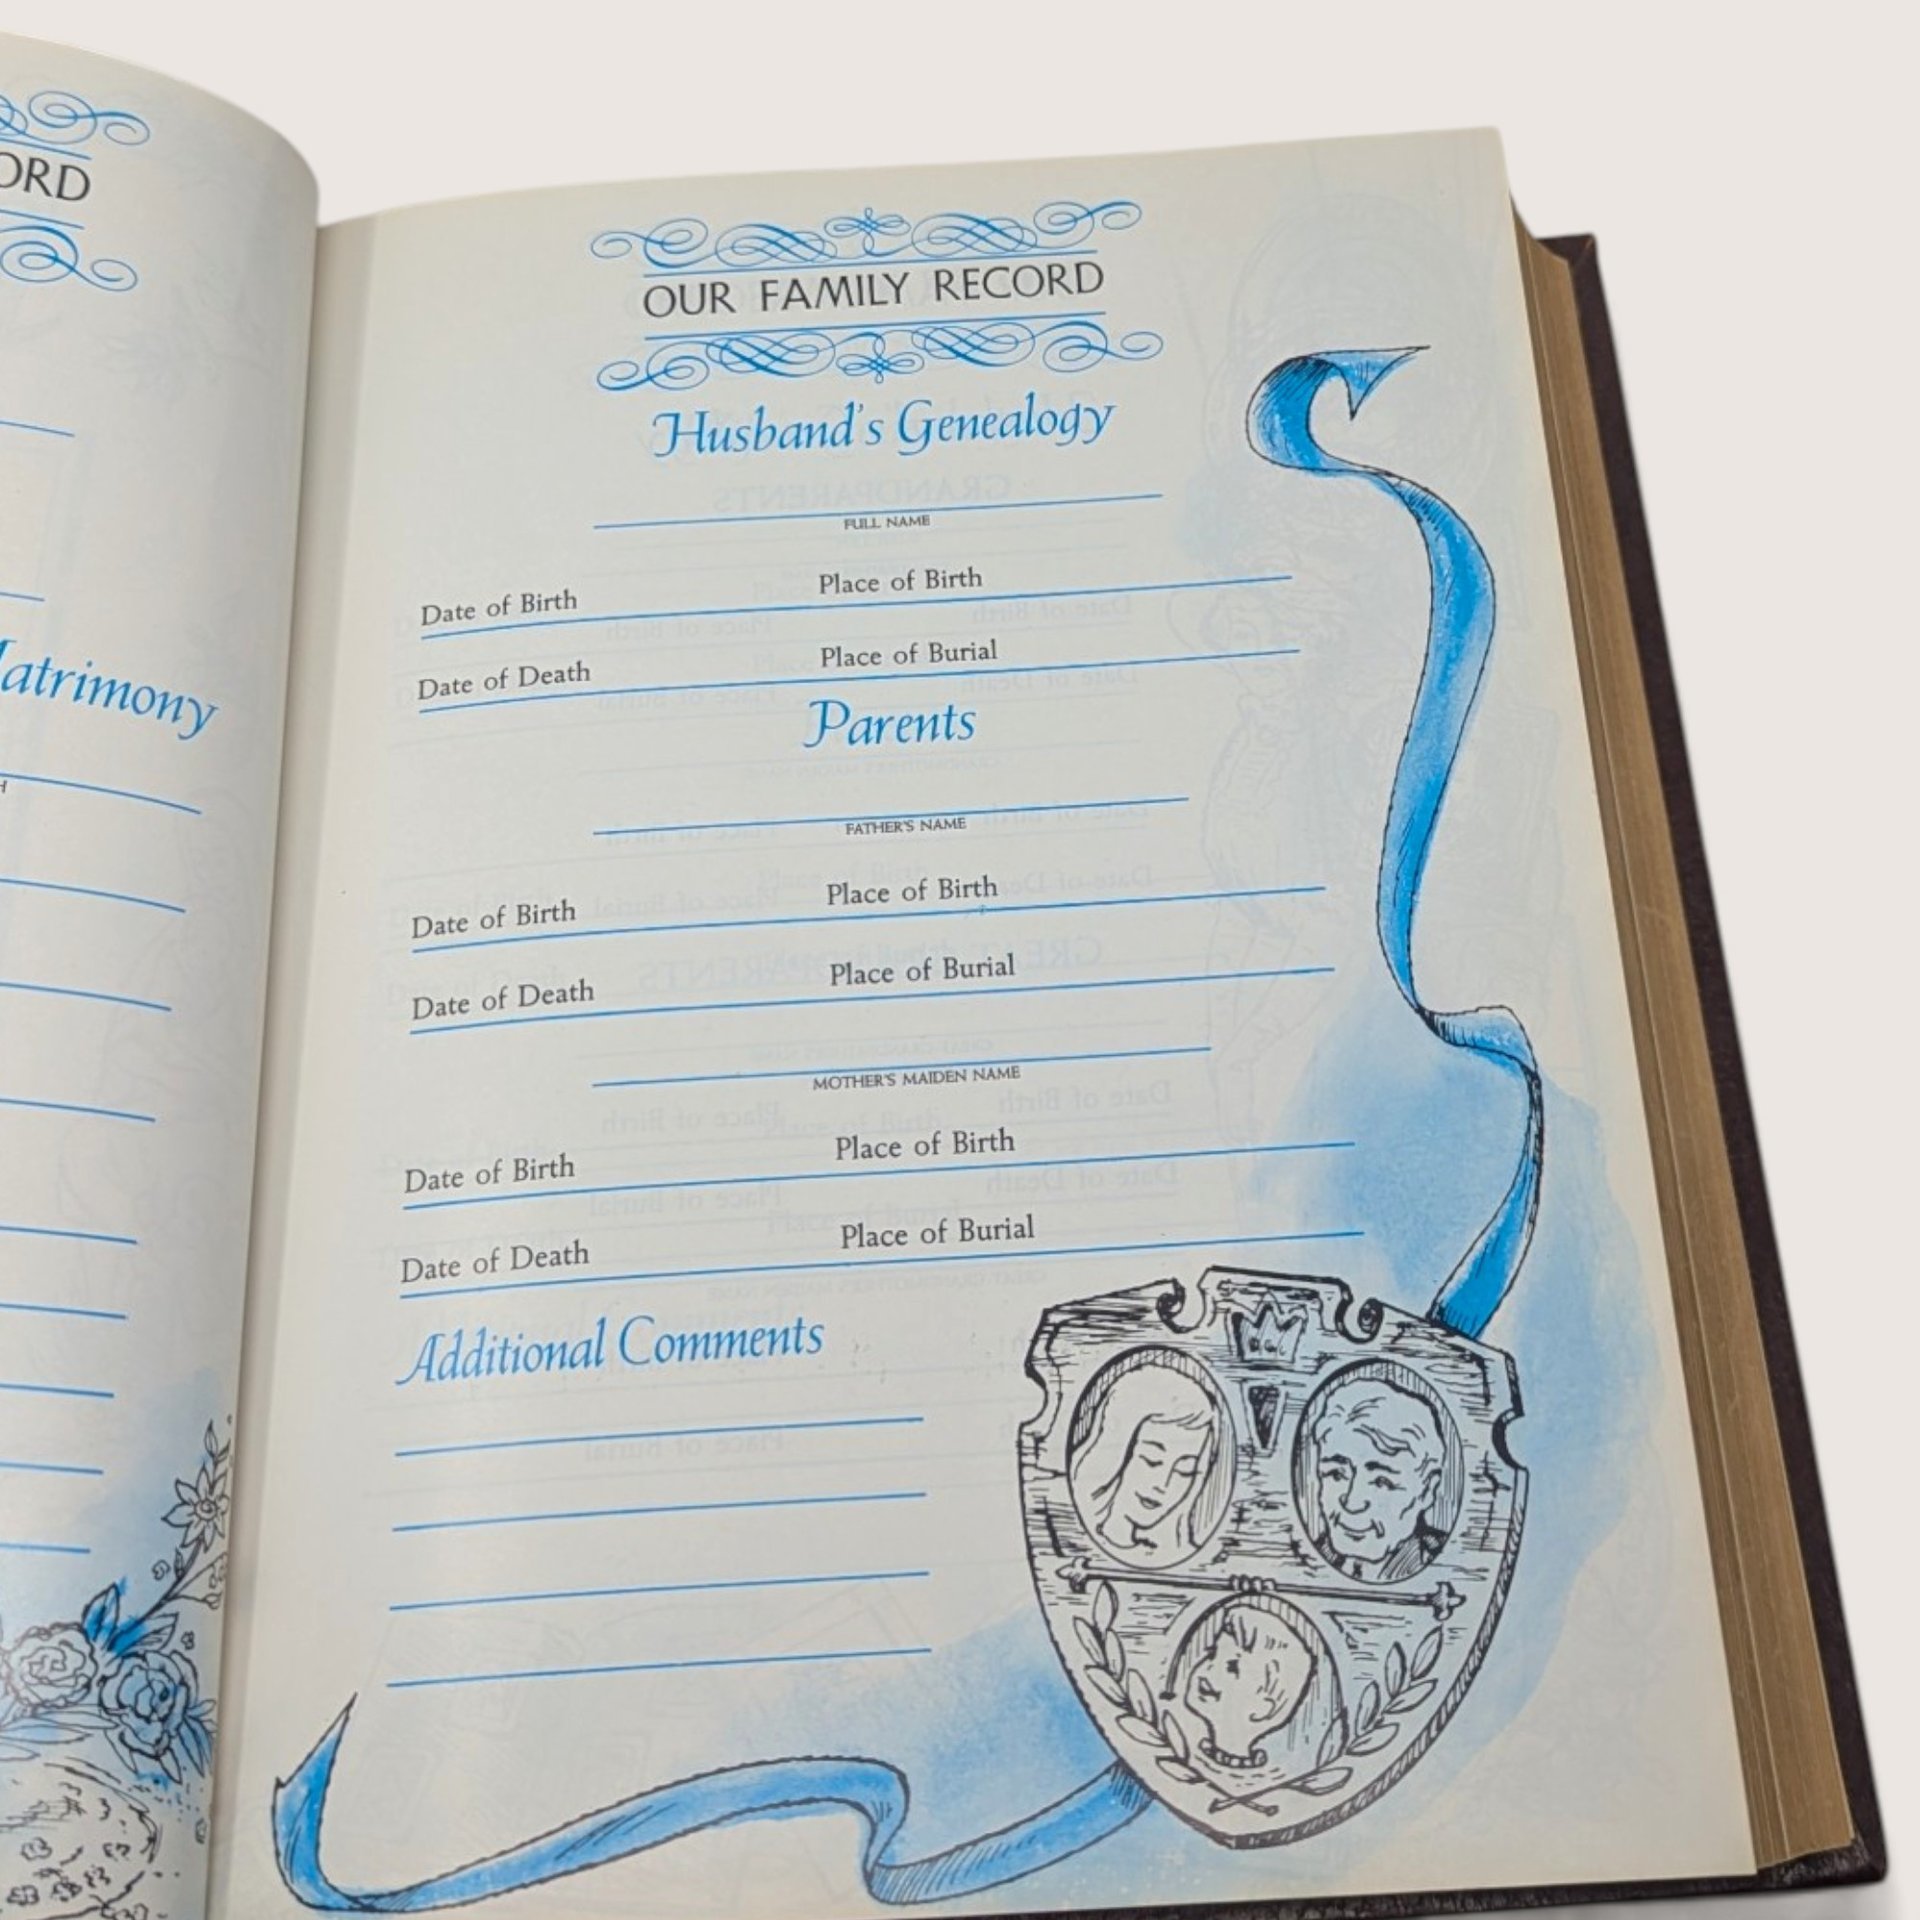 ORD
atrimony
OUR FAMILY RECORD
Husband's Genealogy
FULL NAME
Date of Birth Place of Birth
Date of Death Place of Burial
Parents
FATHER'S NAME
Date of Birth Place of Birth
Date of Death Place of Burial
MOTHER'S MAIDEN NAME
Date of Birth Place of Birth
Date of Death Place of Burial
Additional Comments